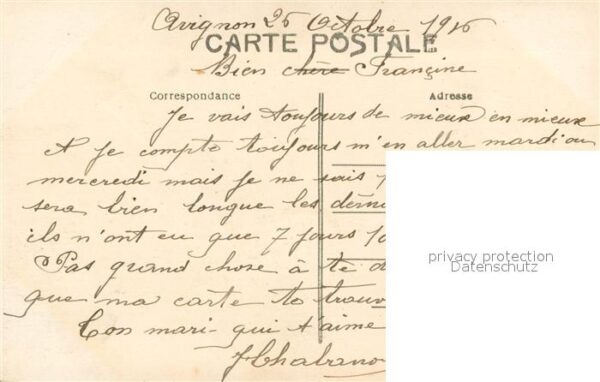 Avignon 26 Octobre 1916
CARTE POSTALE
Bien chère Françine
Correspondance
Adresse
Je vais toujours de mieux en mieux
A je compte toujours m'en aller mardi ou
mercredi mais je ne sais
sera bien longue les dern
ils n'ont eu que 7 jours
Pas grand chose à te d
que ma carte te trouv
Ton mari qui t'aime
privacy protection
Datenschutz